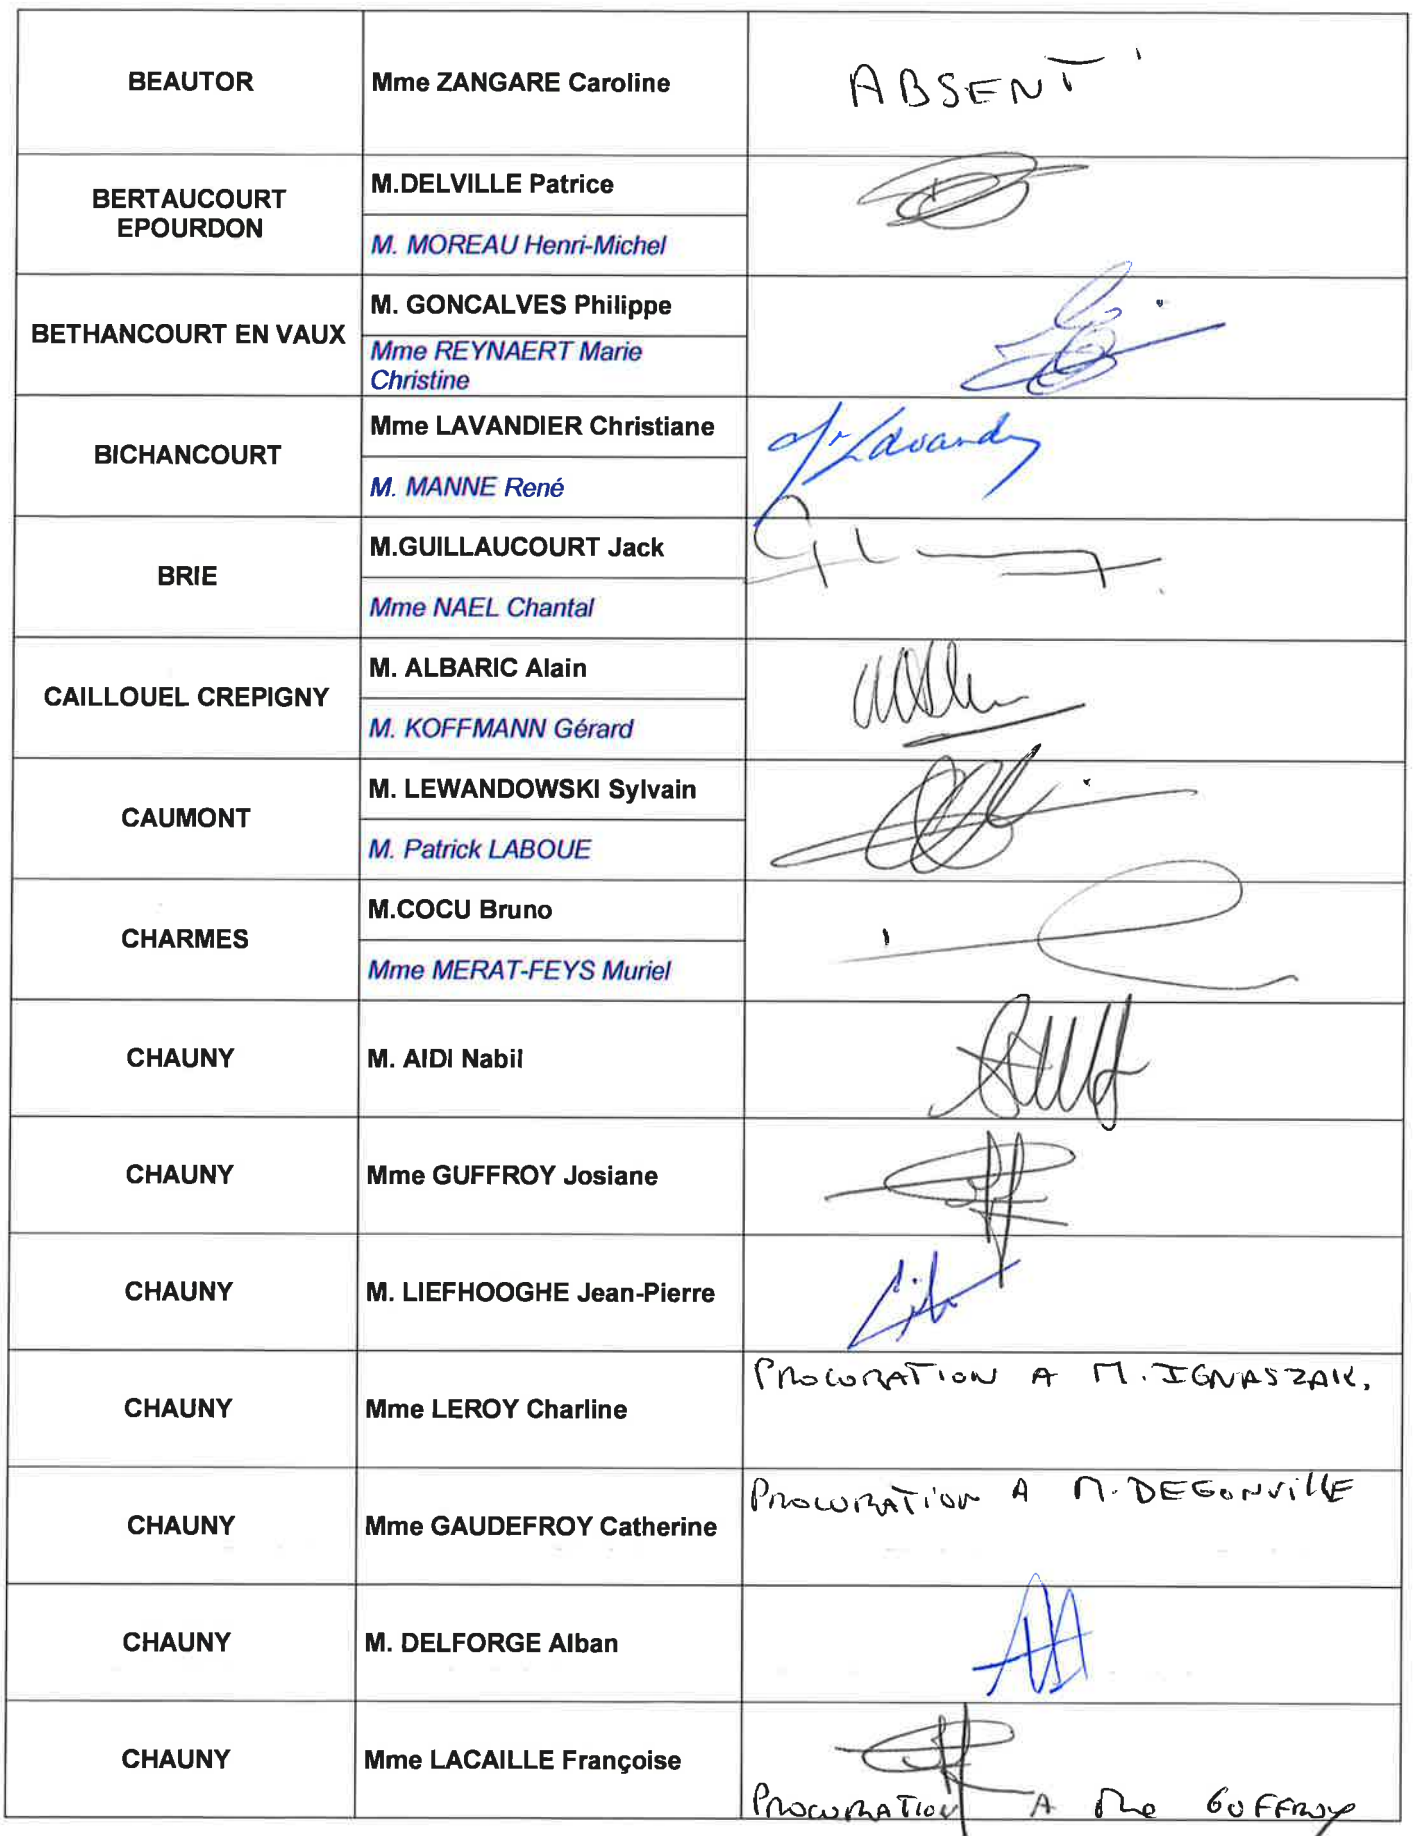 BEAUTOR
Mme ZANGARE Caroline
ABSENT
BERTAUCOURT
EPOURDON
M.DELVILLE Patrice
M. MOREAU Henri-Michel
BETHANCOURT EN VAUX
M. GONCALVES Philippe
Mme REYNAERT Marie
Christine
BICHANCOURT
Mme LAVANDIER Christiane
M. MANNE René
BRIE
M.GUILLAUCOURT Jack
Mme NAEL Chantal
CAILLOUEL CREPIGNY
M. ALBARIC Alain
M. KOFFMANN Gérard
CAUMONT
M. LEWANDOWSKI Sylvain
M. Patrick LABOUE
CHARMES
M.COCU Bruno
Mme MERAT-FEYS Muriel
CHAUNY
M. AIDI Nabil
CHAUNY
Mme GUFFROY Josiane
CHAUNY
M. LIEFHOOGHE Jean-Pierre
CHAUNY
Mme LEROY Charline
PROCURATION A M. IGNASZAK.
CHAUNY
Mme GAUDEFROY Catherine
PROCURATION A M. DEGONVILLE
CHAUNY
M. DELFORGE Alban
CHAUNY
Mme LACAILLE Françoise
PROCURATION A Mme GUFFROY